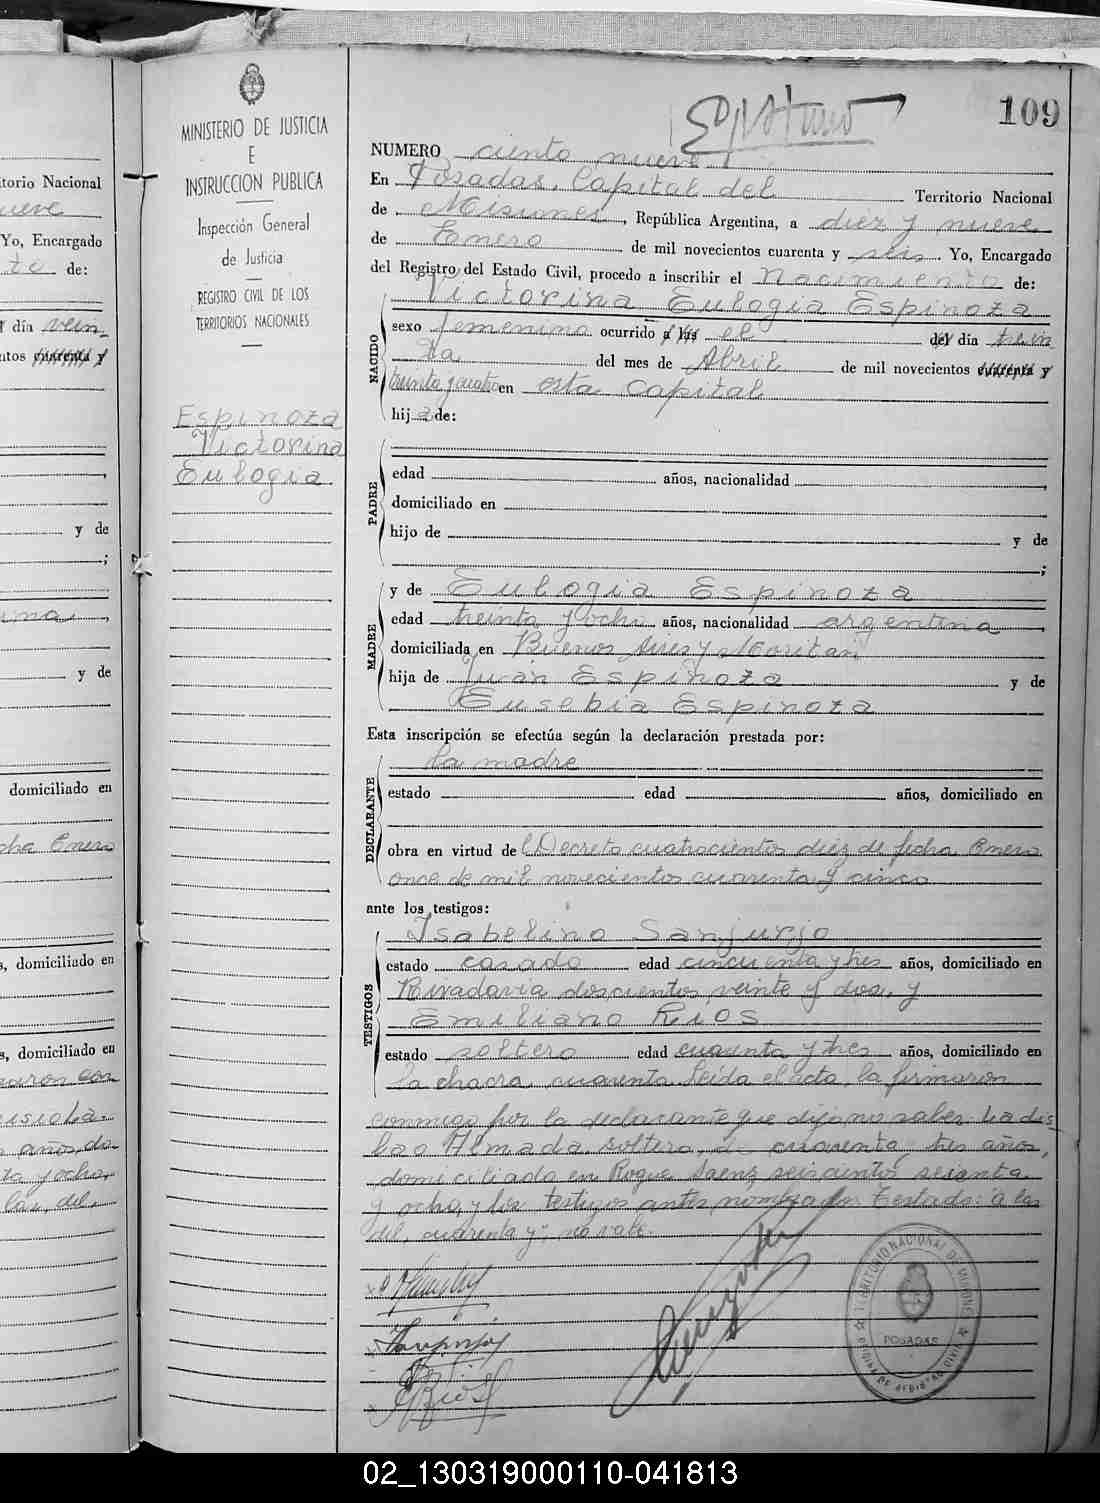 109
MINISTERIO DE JUSTICIA
E
INSTRUCCION PUBLICA
Inspección General
de Justicia
REGISTRO CIVIL DE LOS
TERRITORIOS NACIONALES
Espinoza
Victorina
Eulogia
NUMERO ciento nueve
En Posadas, Capital del Territorio Nacional
de Misiones, República Argentina, a diez y nueve
de Enero de mil novecientos cuarenta y seis Yo, Encargado
del Registro del Estado Civil, procedo a inscribir el Nacimiento de:
NACIDO
Victorina Eulogia Espinoza
sexo femenino ocurrido a las el del día trein
ta del mes de Abril de mil novecientos cuarenta y
treinta y cuatro en esta capital
hij a de:
PADRE
edad años, nacionalidad
domiciliado en
hijo de y de
;
MADRE
y de Eulogia Espinoza
edad treinta y ocho años, nacionalidad argentina
domiciliada en Buenos Aires y
hija de Juan Espinoza y de
Eusebia Espinoza
Esta inscripción se efectúa según la declaración prestada por:
DECLARANTE
la madre
estado edad años, domiciliado en
obra en virtud de l Decreto cuatrocientos diez de fecha Enero
once de mil novecientos cuarenta y cinco
ante los testigos:
TESTIGOS
Isabelino Sanjurjo
estado casado edad cincuenta y tres años, domiciliado en
Rivadavia doscientos veinte y dos, y
Emiliano Rios
estado soltero edad cuarenta y tres años, domiciliado en
la chacra cuarenta. Leída el acta, la firmaron
conmigo por la declarante que dijo no saber
Almada, soltera, de cuarenta tres años,
domiciliada en Roque Saenz seiscientos sesenta
y ocho, y los testigos antes nombrados. Testado: a las
del, cuarenta y: no vale.
Sanjurjo
Rios
TERRITORIO NACIONAL DE MISIONES
POSADAS
OFICINA DE REGISTRO CIVIL
itorio Nacional
ueve
Yo, Encargado
de:
día vein
ntos cuarenta y
y de
;
y de
domiciliado en
cha Enero
s, domiciliado en
s, domiciliado en
ta y ocho,
las, del,
02_130319000110-041813